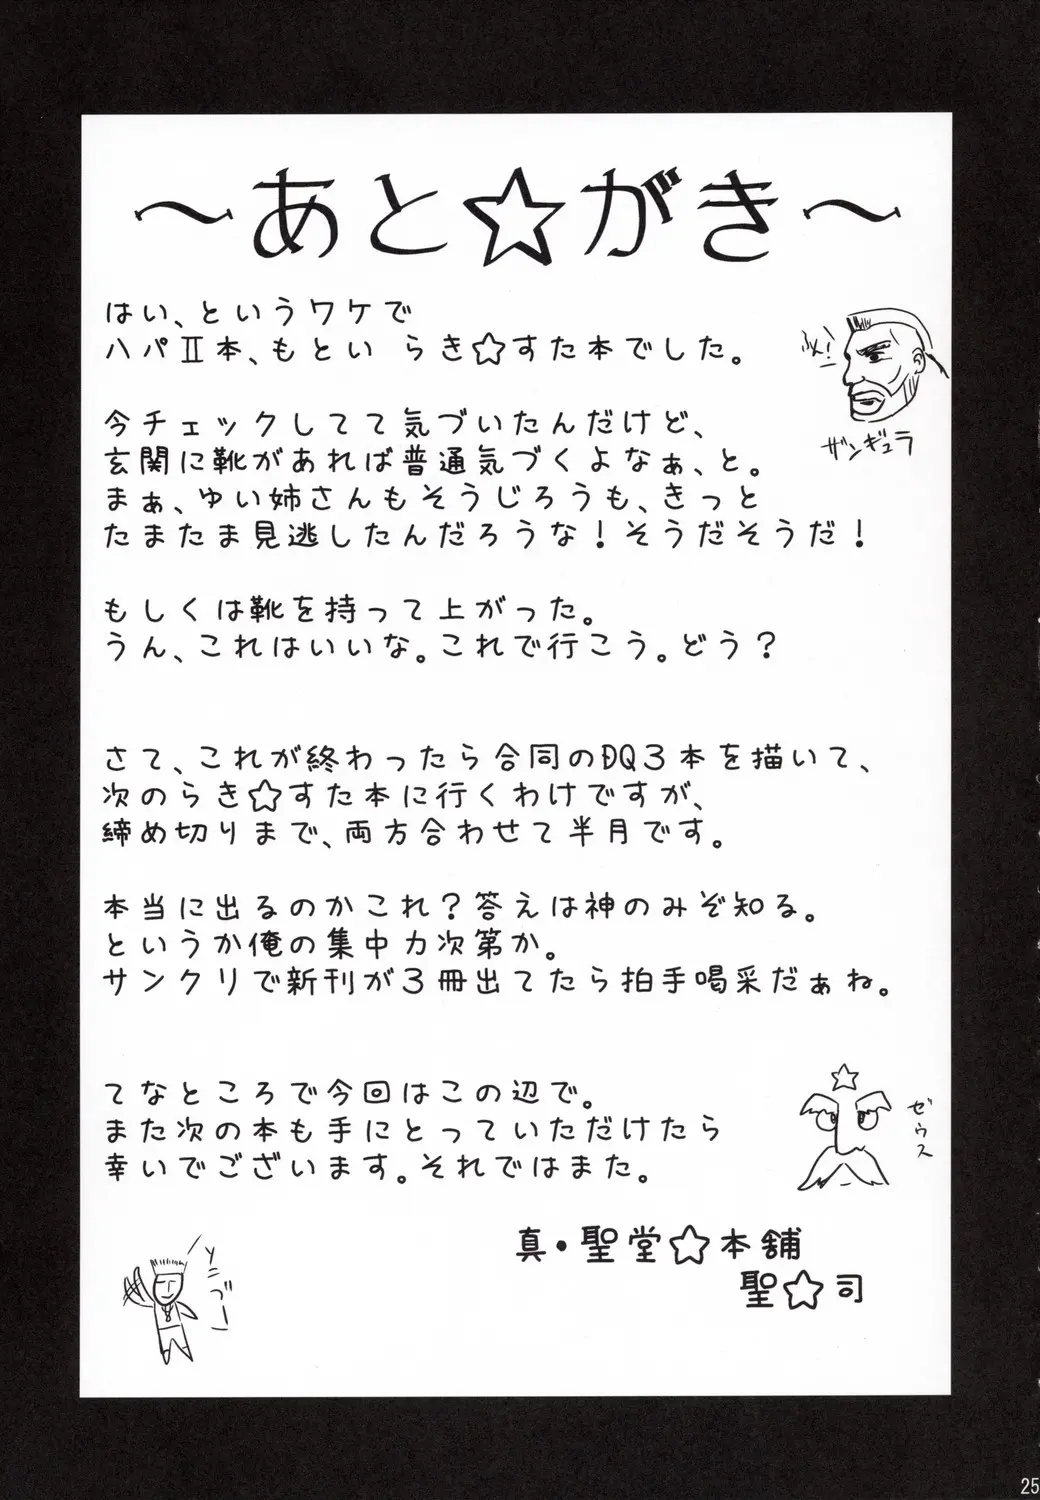 ～あと☆がき～
はい、というワケで
ハパⅡ本、もとい らき☆すた本でした。
ふん!
ザンギュラ
今チェックしてて気づいたんだけど、
玄関に靴があれば普通気づくよなぁ、と。
まぁ、ゆい姉さんもそうじろうも、きっと
たまたま見逃したんだろうな!そうだそうだ!
もしくは靴を持って上がった。
うん、これはいいな。これで行こう。どう?
さて、これが終わったら合同のDQ3本を描いて、
次のらき☆すた本に行くわけですが、
締め切りまで、両方合わせて半月です。
本当に出るのかこれ?答えは神のみぞ知る。
というか俺の集中力次第か。
サンクリで新刊が3冊出てたら拍手喝采だぁね。
てなところで今回はこの辺で。
また次の本も手にとっていただけたら
幸いでございます。それではまた。
ゼウス
真・聖堂☆本舗
聖☆司
25